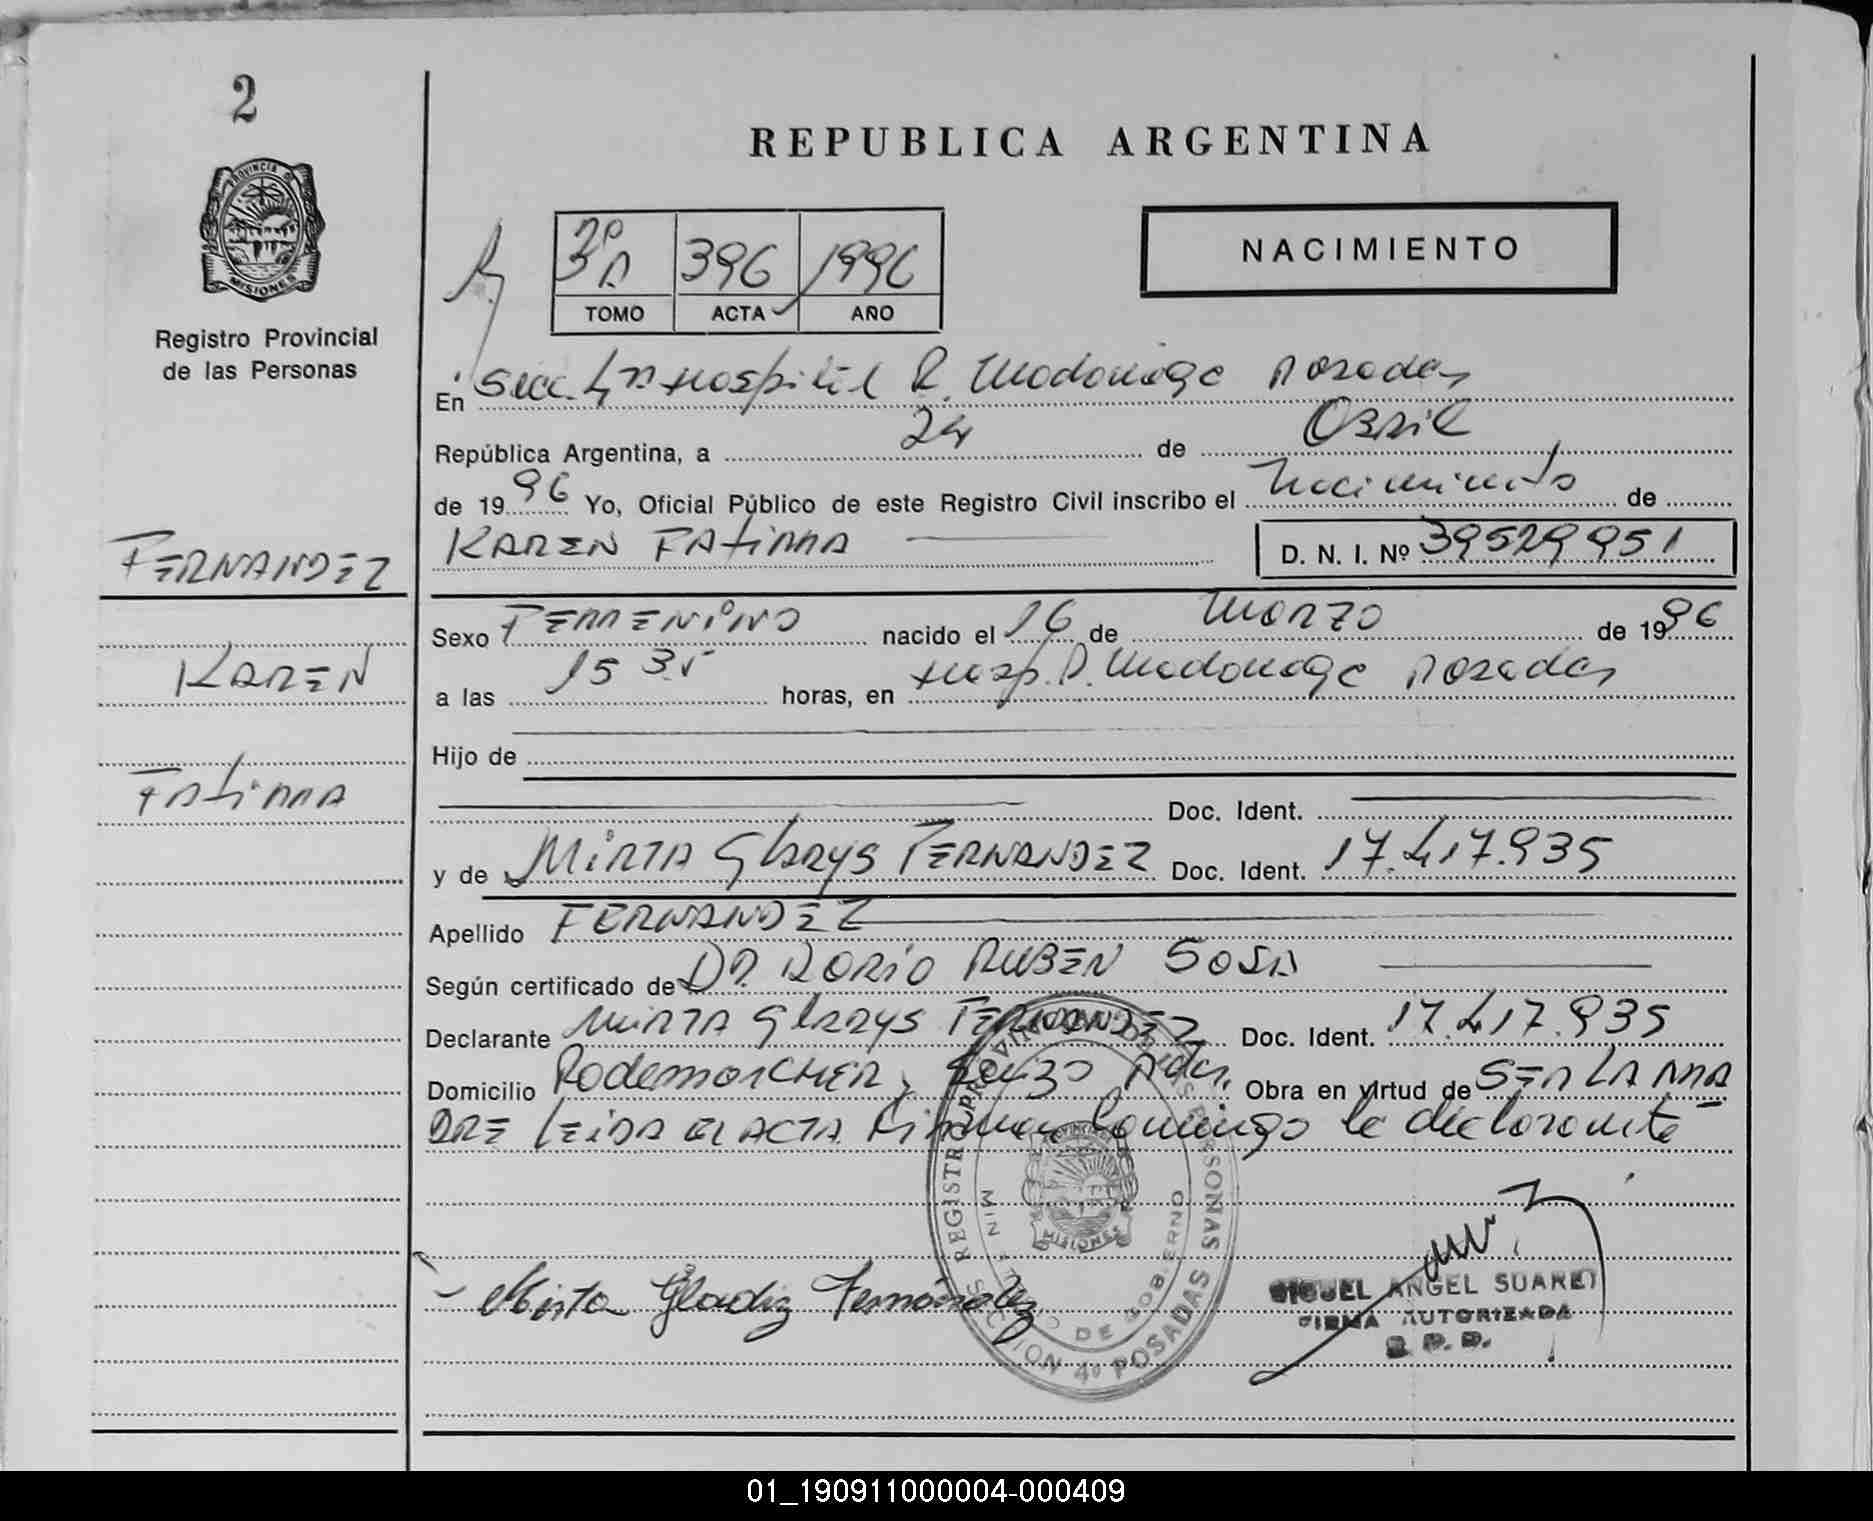 2
REPUBLICA ARGENTINA
PROVINCIA DE
MISIONES
Registro Provincial
de las Personas
396 1996
TOMO ACTA AÑO
NACIMIENTO
En Secc. 4ta Hospital R. Madariaga Posadas
República Argentina, a 24 de Abril
de 1996 Yo, Oficial Público de este Registro Civil inscribo el Nacimiento de
KAREN FATIMA D. N. I. Nº 39529951
FERNANDEZ
KAREN
FATIMA
Sexo FEMENINO nacido el 16 de Marzo de 1996
a las 15 35 horas, en Hosp. R. Madariaga Posadas
Hijo de
Doc. Ident.
y de MIRTA GLADYS FERNANDEZ Doc. Ident. 17.417.935
Apellido FERNANDEZ
Según certificado de DR. DARIO RUBEN SOSA
Declarante MIRTA GLADYS FERNANDEZ Doc. Ident. 17.417.935
Domicilio Rademacher y Pdas. Obra en virtud de SER LA MA
DRE LEIDA EL ACTA Firman Conmigo la declarante
Mirta Gladiz Fernández
REGISTRO PROVINCIAL DE LAS PERSONAS
MINISTERIO DE GOBIERNO
MISIONES
SECCION 4º POSADAS
MIGUEL ANGEL SUAREZ
FIRMA AUTORIZADA
01_190911000004-000409